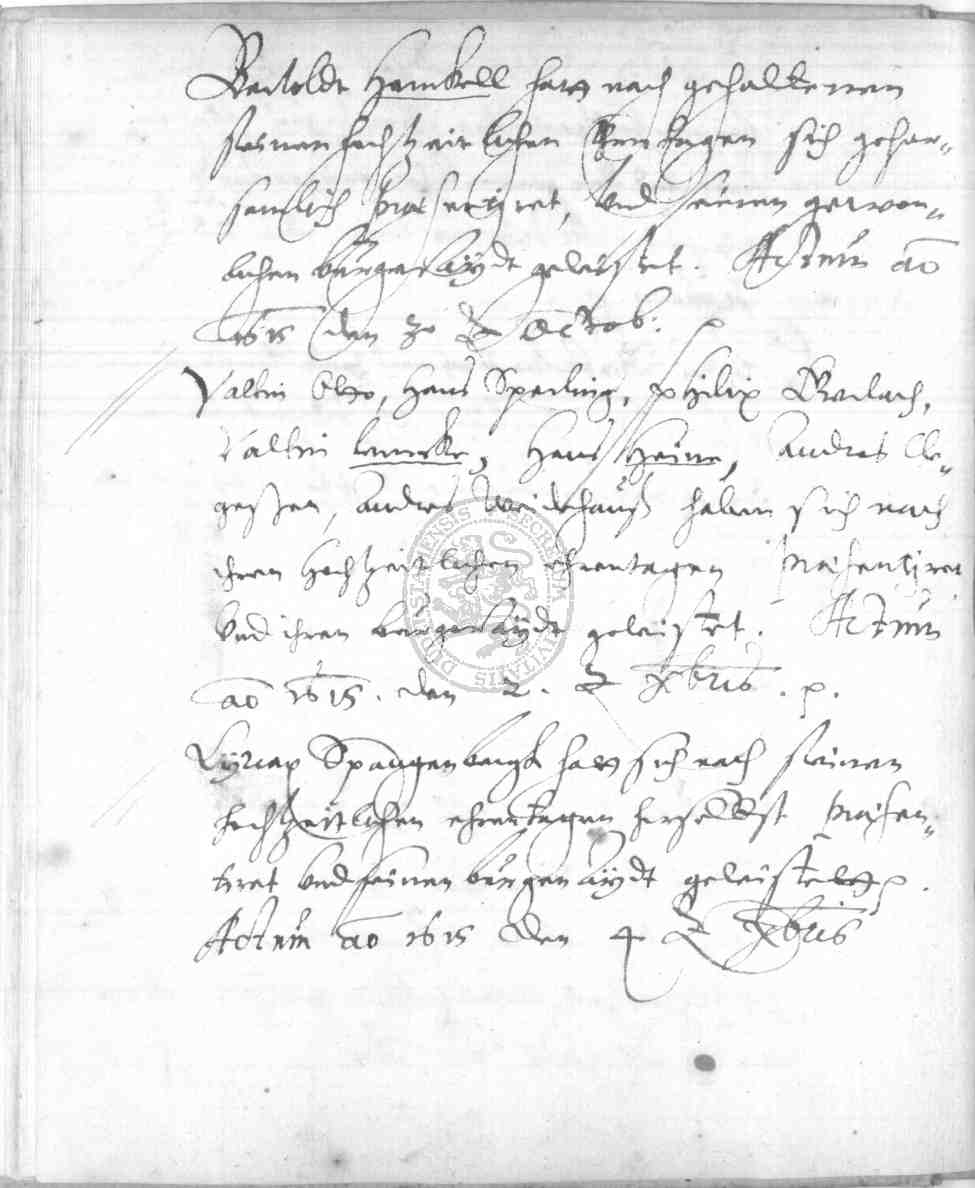 Bartoldt Henckell hatt nach gehaltenen
seinen hochzeitlichen Ehrentagen sich gehor-
samlich praesentiret, undt seinen gewon-
lichen bürger aÿdt geleistet. Actum ao
1615 den 30 Octob: p
Valtin Otto, Hans Sperling, Philip Gerlach,
Valtin Lemcke, Hans Heine, Andres
Andres Weidehauß haben sich nach
ihren hochzeitlichen ehrentagen praesentiret
undt ihren bürger aÿdt geleistet. Actum
ao 1615. den 2. Xbris. p.
Cyriax Spangenbergk hatt sich nach seinen
hochzeitlichen ehrentagen hieselbst praesen-
tiret undt seinen bürger aÿdt geleistett p.
Actum ao 1615 den 4 Xbris
DUDERSTADIENSIS SECRETUM CIVITATIS